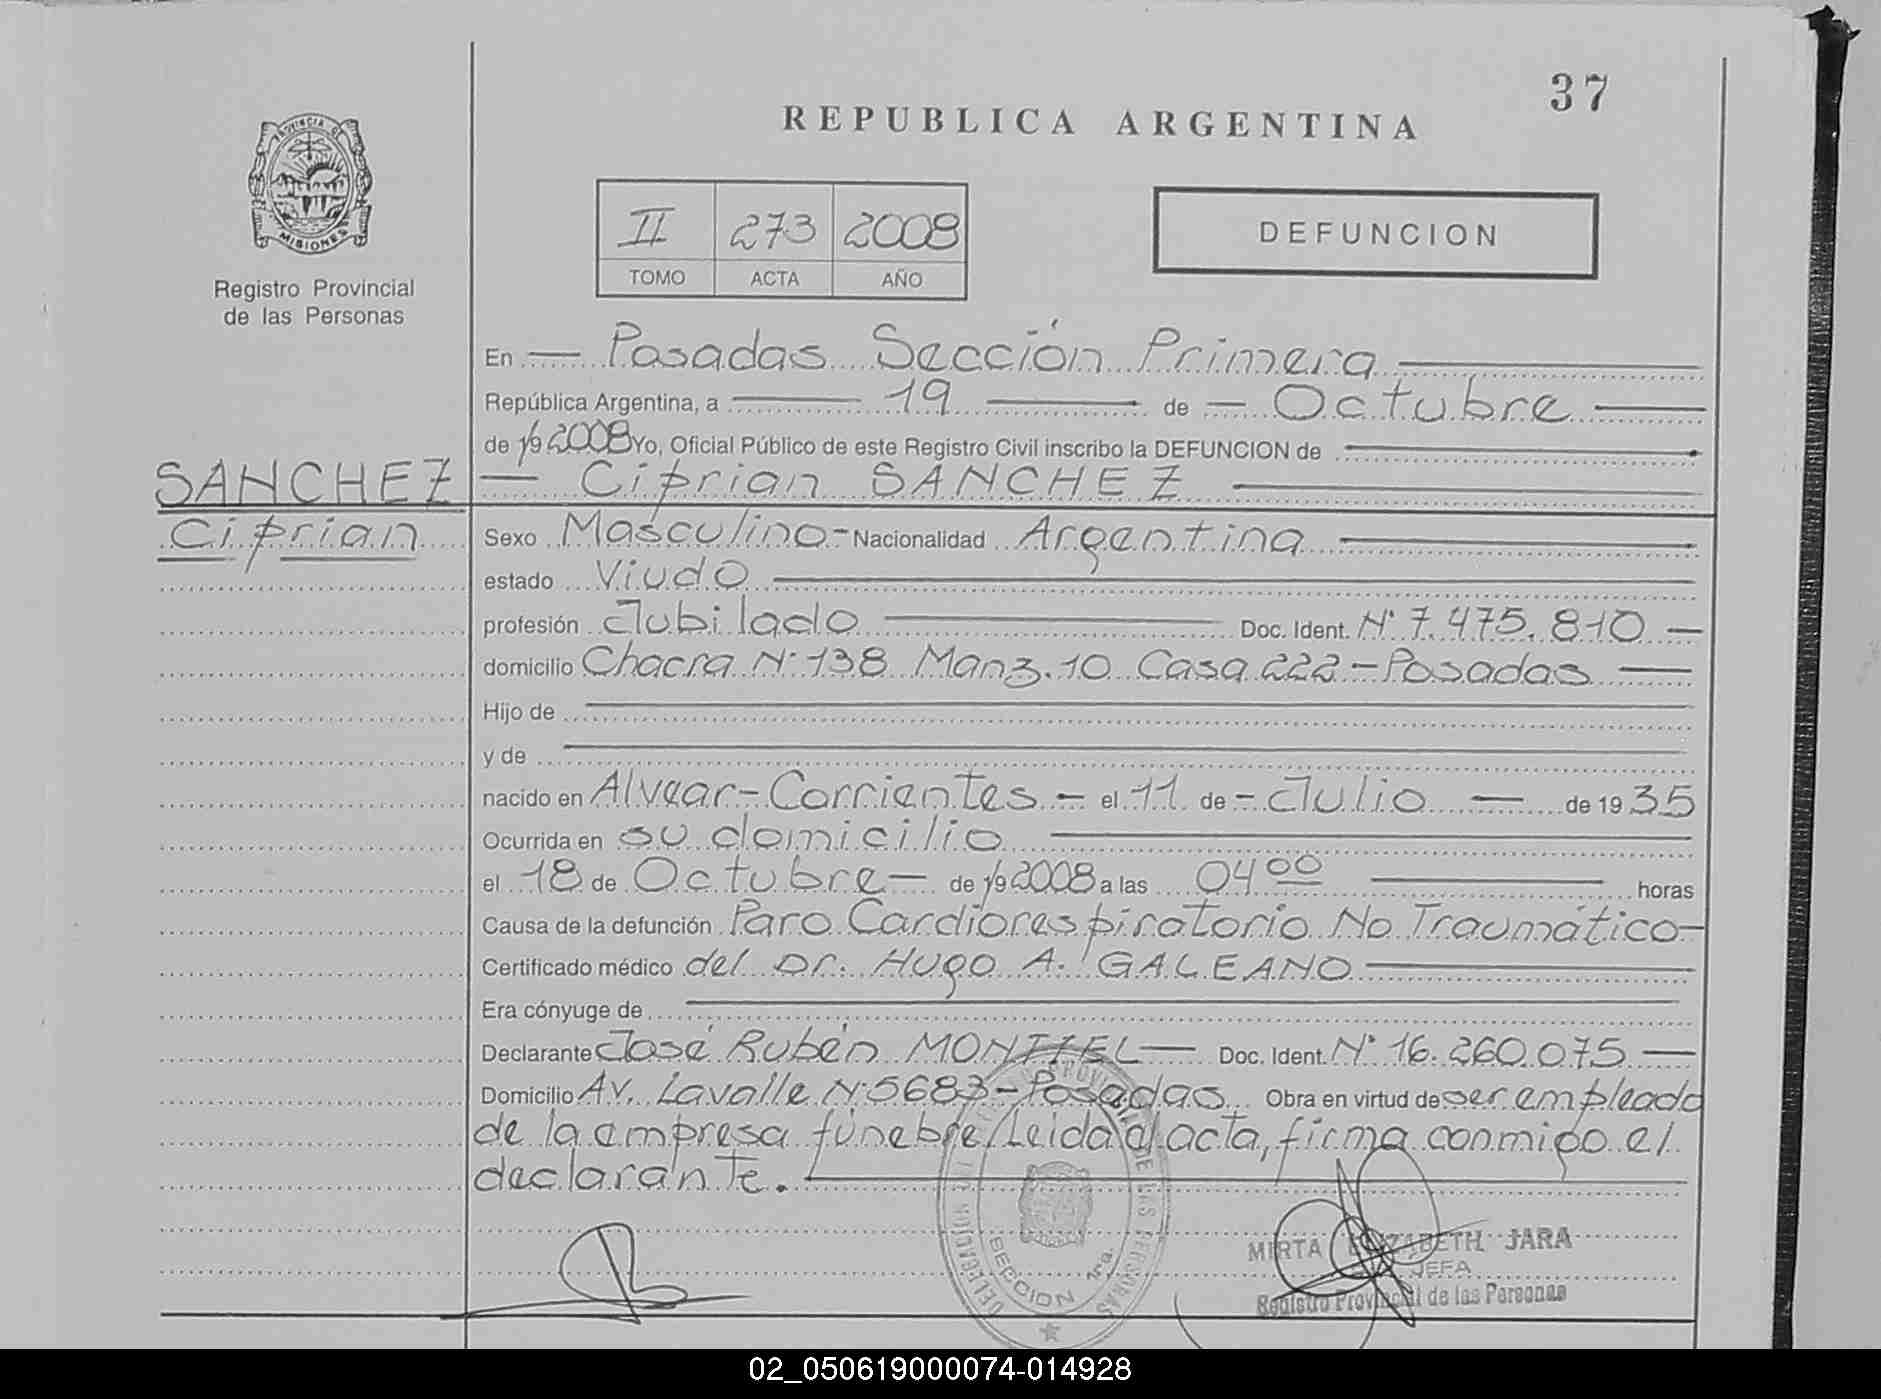 37
REPUBLICA ARGENTINA
PROVINCIA DE
MISIONES
Registro Provincial
de las Personas
II 273 2008
TOMO ACTA AÑO
DEFUNCION
En Posadas Sección Primera
República Argentina, a 19 de Octubre
de 19 2008 Yo, Oficial Público de este Registro Civil inscribo la DEFUNCION de
SANCHEZ
Ciprian
Ciprian SANCHEZ
Sexo Masculino - Nacionalidad Argentina
estado Viudo
profesión Jubilado Doc. Ident. N° 7.475.810
domicilio Chacra N° 138 Manz. 10 Casa 222 - Posadas
Hijo de
y de
nacido en Alvear - Corrientes - el 11 de - Julio de 19 35
Ocurrida en su domicilio
el 18 de Octubre de 19 2008 a las 04 00 horas
Causa de la defunción Paro Cardiorespiratorio No Traumático
Certificado médico del Dr. Hugo A. GALEANO
Era cónyuge de
Declarante José Rubén MONTIEL Doc. Ident. N° 16.260.075
Domicilio AV. Lavalle N° 5683 - Posadas Obra en virtud de ser empleado
de la empresa fúnebre/Leida el acta, firma conmigo el
declarante.
SECCION 1ra.
MIRTA ELIZABETH JARA
JEFA
Registro Provincial de las Personas
02_050619000074-014928